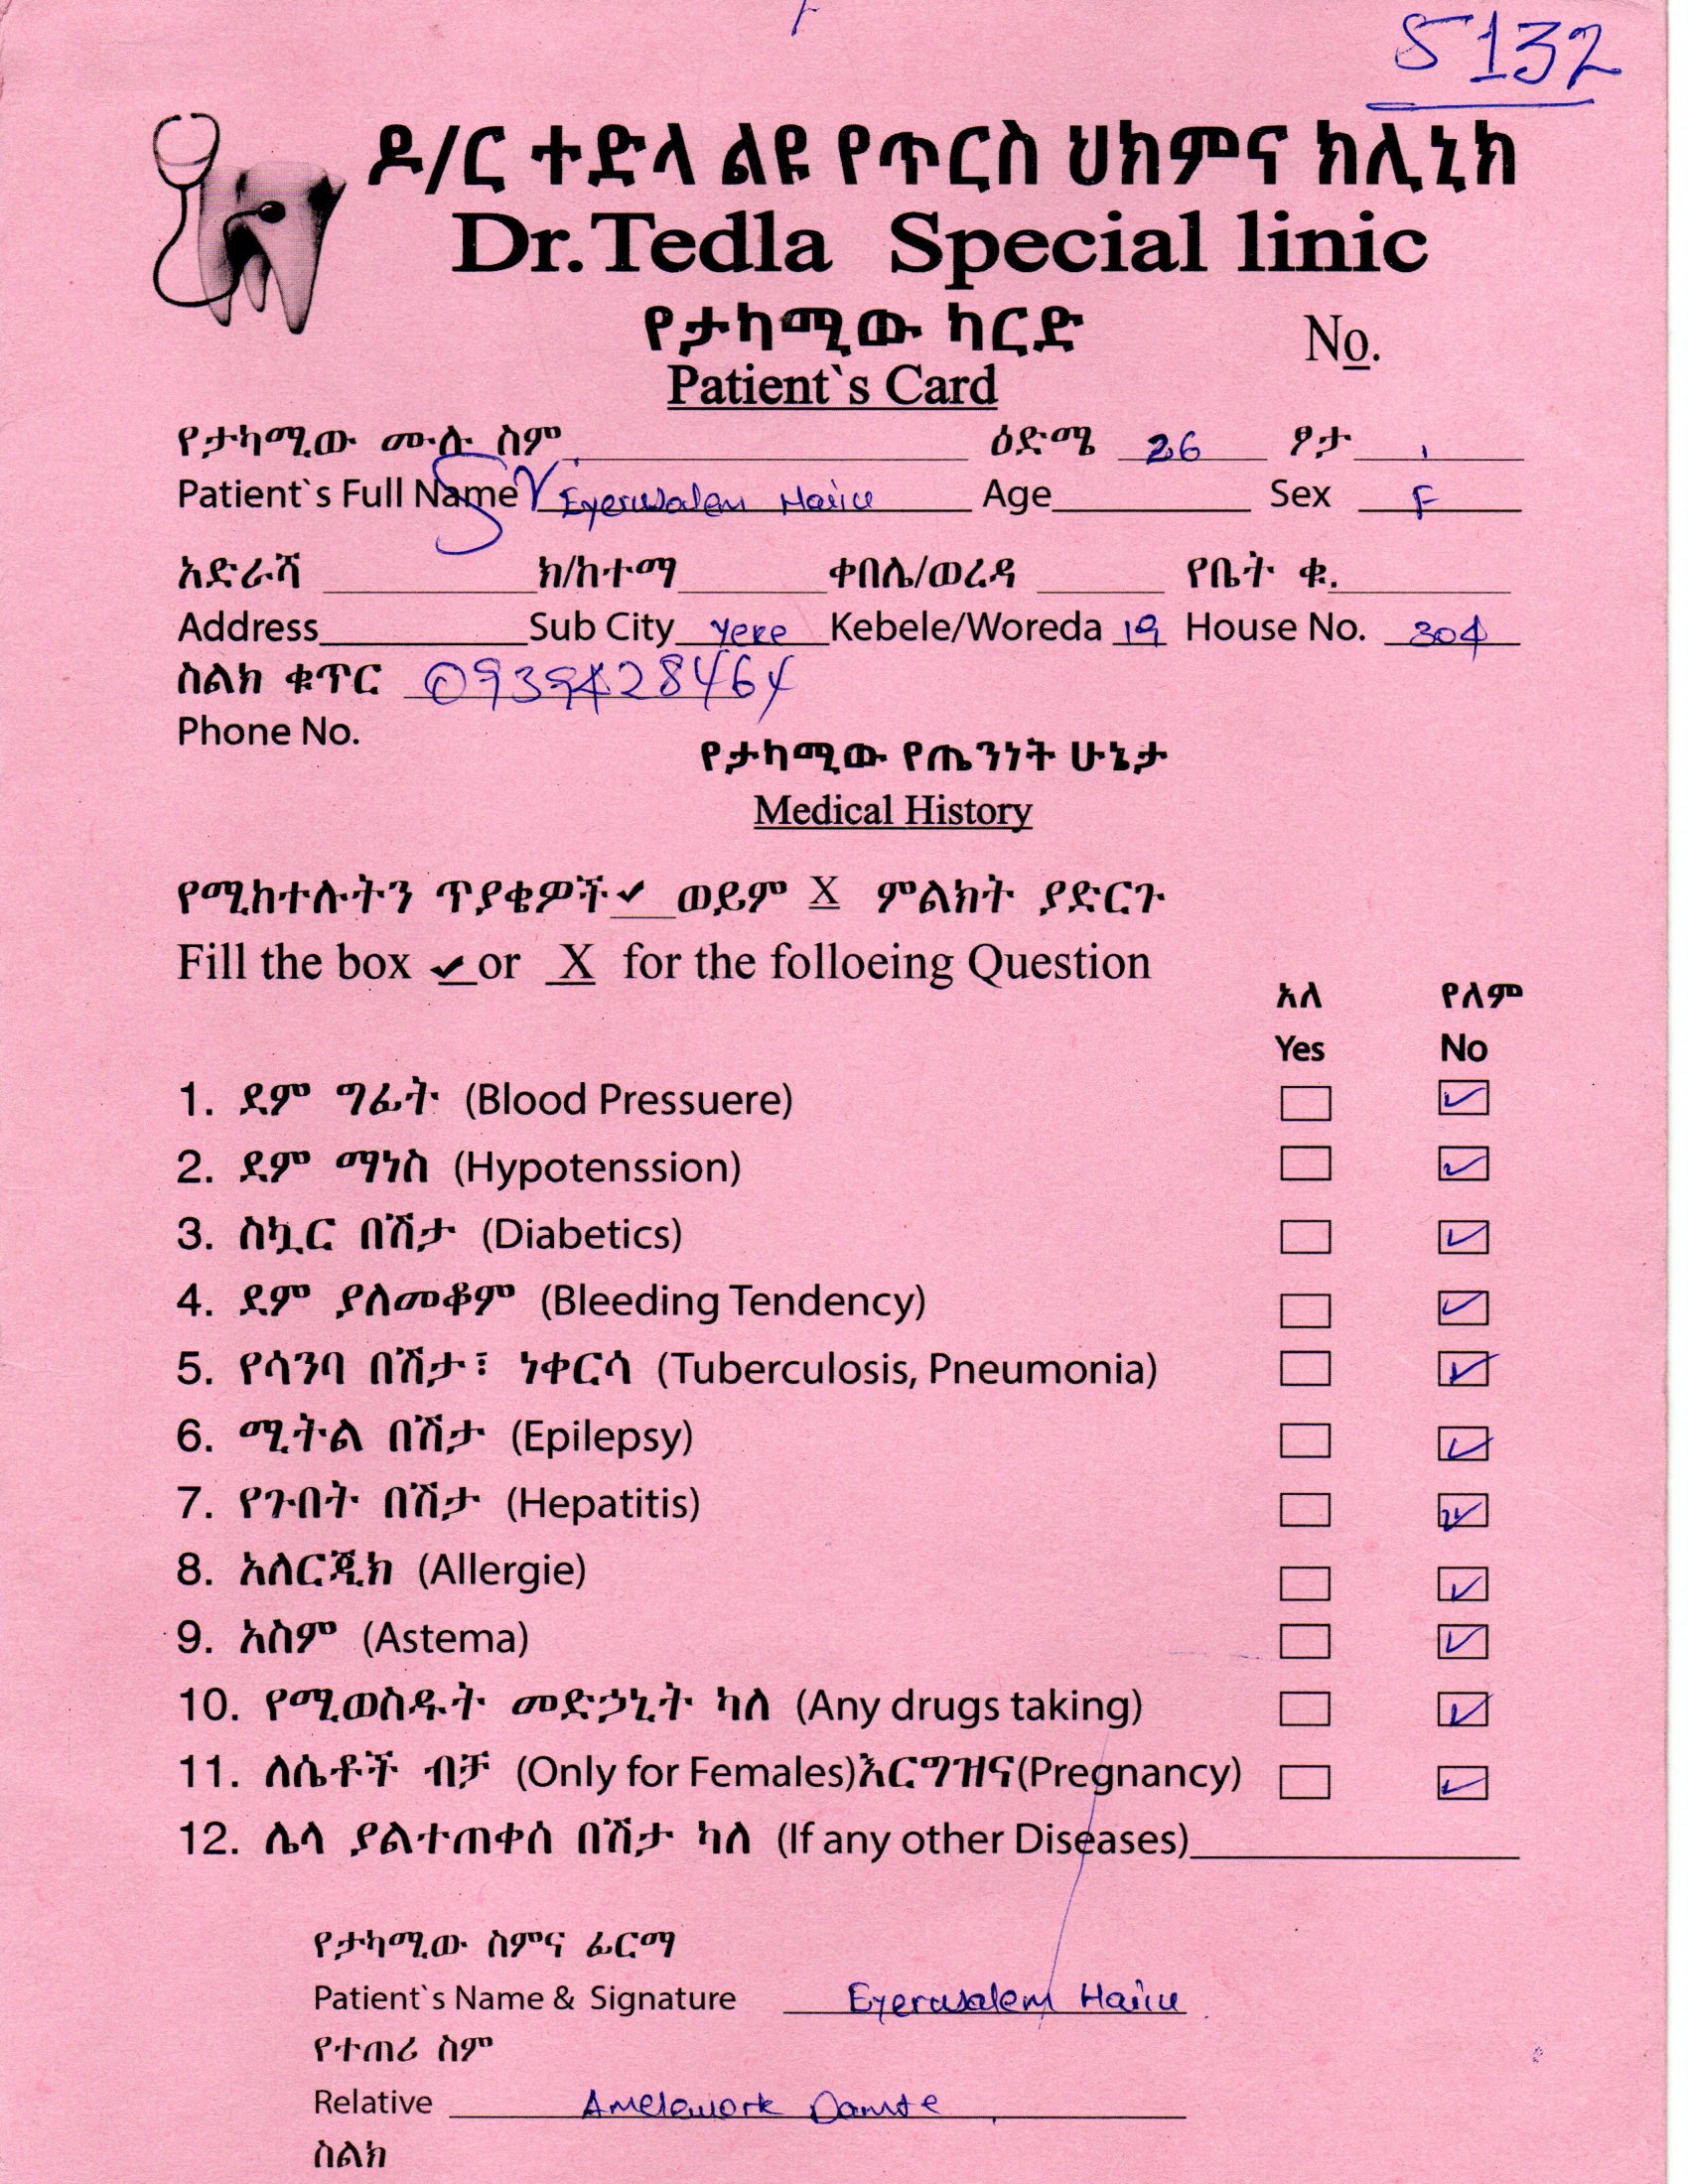 5132
ዶ/ር ተድላ ልዩ የጥርስ ህክምና ክሊኒክ
Dr.Tedla Special linic
የታካሚው ካርድ
No.
Patient`s Card
የታካሚው ሙሉ ስም ዕድሜ 26 ፆታ
Patient`s Full Name Eyerusalem Hailu Age Sex F
አድራሻ ክ/ከተማ ቀበሌ/ወረዳ የቤት ቁ.
Address Sub City yeke Kebele/Woreda 19 House No. 304
ስልክ ቁጥር
Phone No.
የታካሚው የጤንነት ሁኔታ
Medical History
የሚከተሉትን ጥያቄዎች ✓ ወይም X ምልክት ያድርጉ
Fill the box ✓ or X for the folloeing Question
አለ የለም
Yes No
1. ደም ግፊት (Blood Pressuere) ✓
2. ደም ማነስ (Hypotenssion) ✓
3. ስኳር በሽታ (Diabetics) ✓
4. ደም ያለመቆም (Bleeding Tendency) ✓
5. የሳንባ በሽታ፣ ነቀርሳ (Tuberculosis, Pneumonia) ✓
6. ሚትል በሽታ (Epilepsy) ✓
7. የጉበት በሽታ (Hepatitis) ✓
8. አለርጂክ (Allergie) ✓
9. አስም (Astema) ✓
10. የሚወስዱት መድኃኒት ካለ (Any drugs taking) ✓
11. ለሴቶች ብቻ (Only for Females)እርግዝና(Pregnancy) ✓
12. ሌላ ያልተጠቀሰ በሽታ ካለ (If any other Diseases)
የታካሚው ስምና ፊርማ
Patient`s Name & Signature Eyerusalem Hailu
የተጠሪ ስም
Relative Amelework Damte
ስልክ